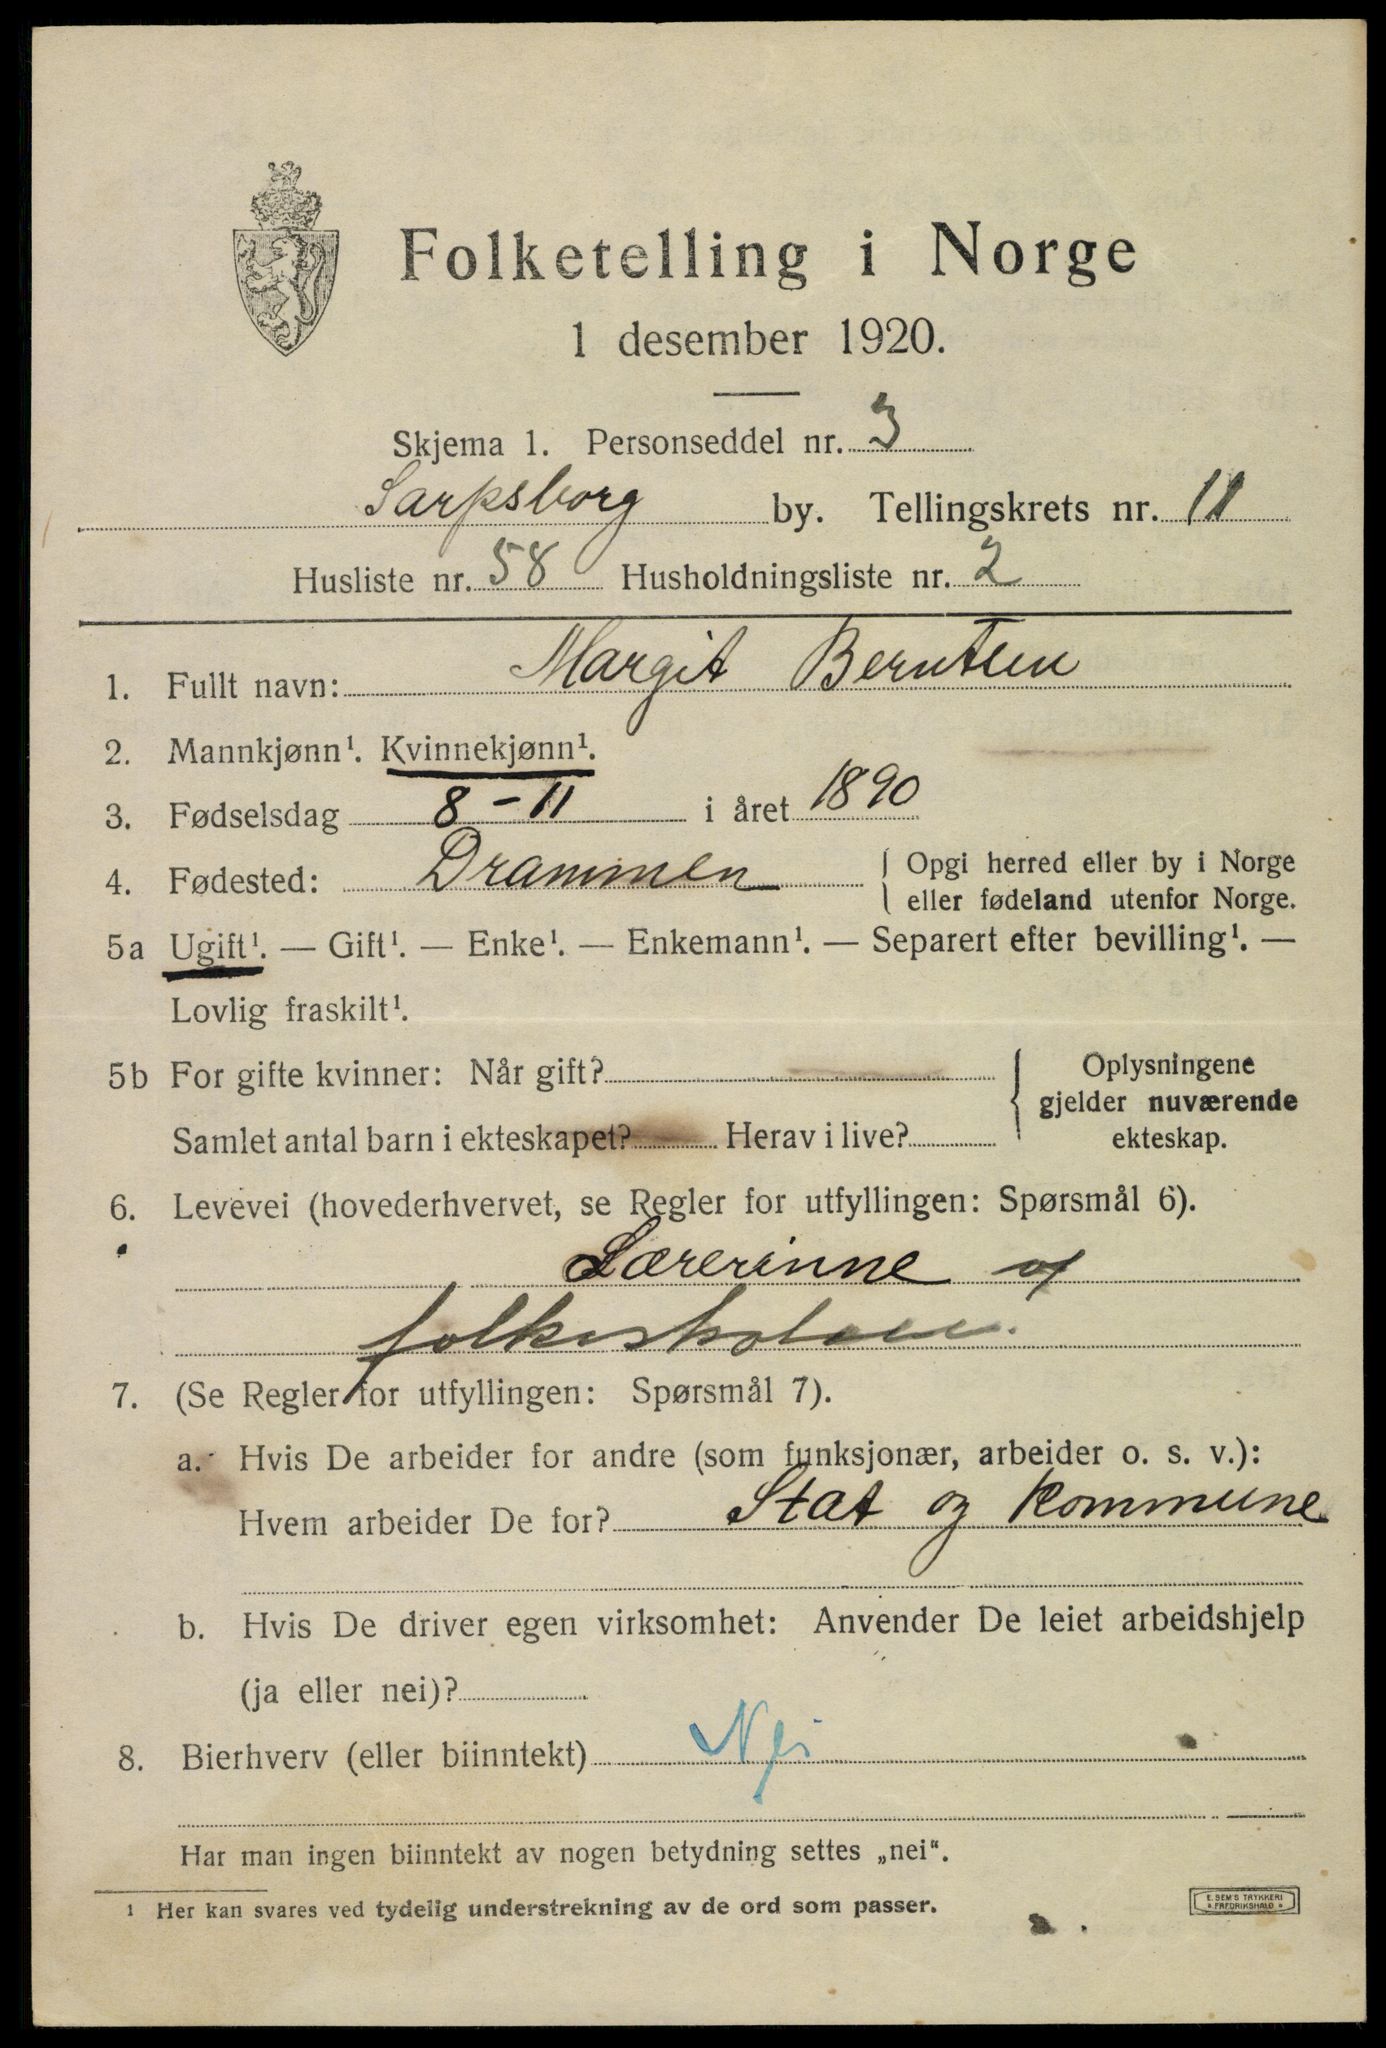 Folketelling i Norge
1 desember 1920.
Skjema 1. Personseddel nr. 3
Sarpsborg by. Tellingskrets nr. 11
Husliste nr. 58 Husholdningsliste nr. 2
1. Fullt navn: Margit Berntsen
2. Mannkjønn¹. Kvinnekjønn¹.
3. Fødselsdag 8-11 i året 1890
4. Fødested: Drammen { Opgi herred eller by i Norge
eller fødeland utenfor Norge.
5a Ugift¹. — Gift¹. — Enke¹. — Enkemann¹. — Separert efter bevilling¹. —
Lovlig fraskilt¹.
5b For gifte kvinner: Når gift? { Oplysningene
gjelder nuværende
Samlet antal barn i ekteskapet? Herav i live? ekteskap.
6. Levevei (hovederhvervet, se Regler for utfyllingen: Spørsmål 6).
Lærerinne
folkeskolen.
7. (Se Regler for utfyllingen: Spørsmål 7).
a. Hvis De arbeider for andre (som funksjonær, arbeider o. s. v.):
Hvem arbeider De for? Stat og kommune
b. Hvis De driver egen virksomhet: Anvender De leiet arbeidshjelp
(ja eller nei)?
8. Bierhverv (eller biinntekt) Nei
Har man ingen biinntekt av nogen betydning settes „nei“.
1 Her kan svares ved tydelig understrekning av de ord som passer.
E. SEM'S TRYKKERI
FREDRIKSHALD